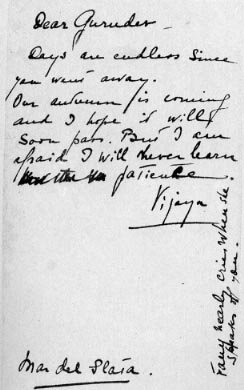 Dear Gurudev
Days are endless since
you went away.
Our autumn is coming
and I hope it will
soon pass. But I am
afraid I will never learn
patience.
Vijaya
Mar del Plata.
Fany nearly cries when she
speaks of you.